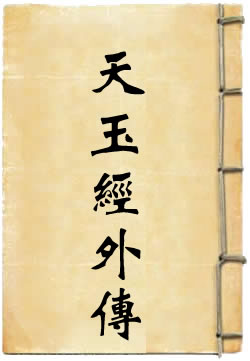 天玉經外傳